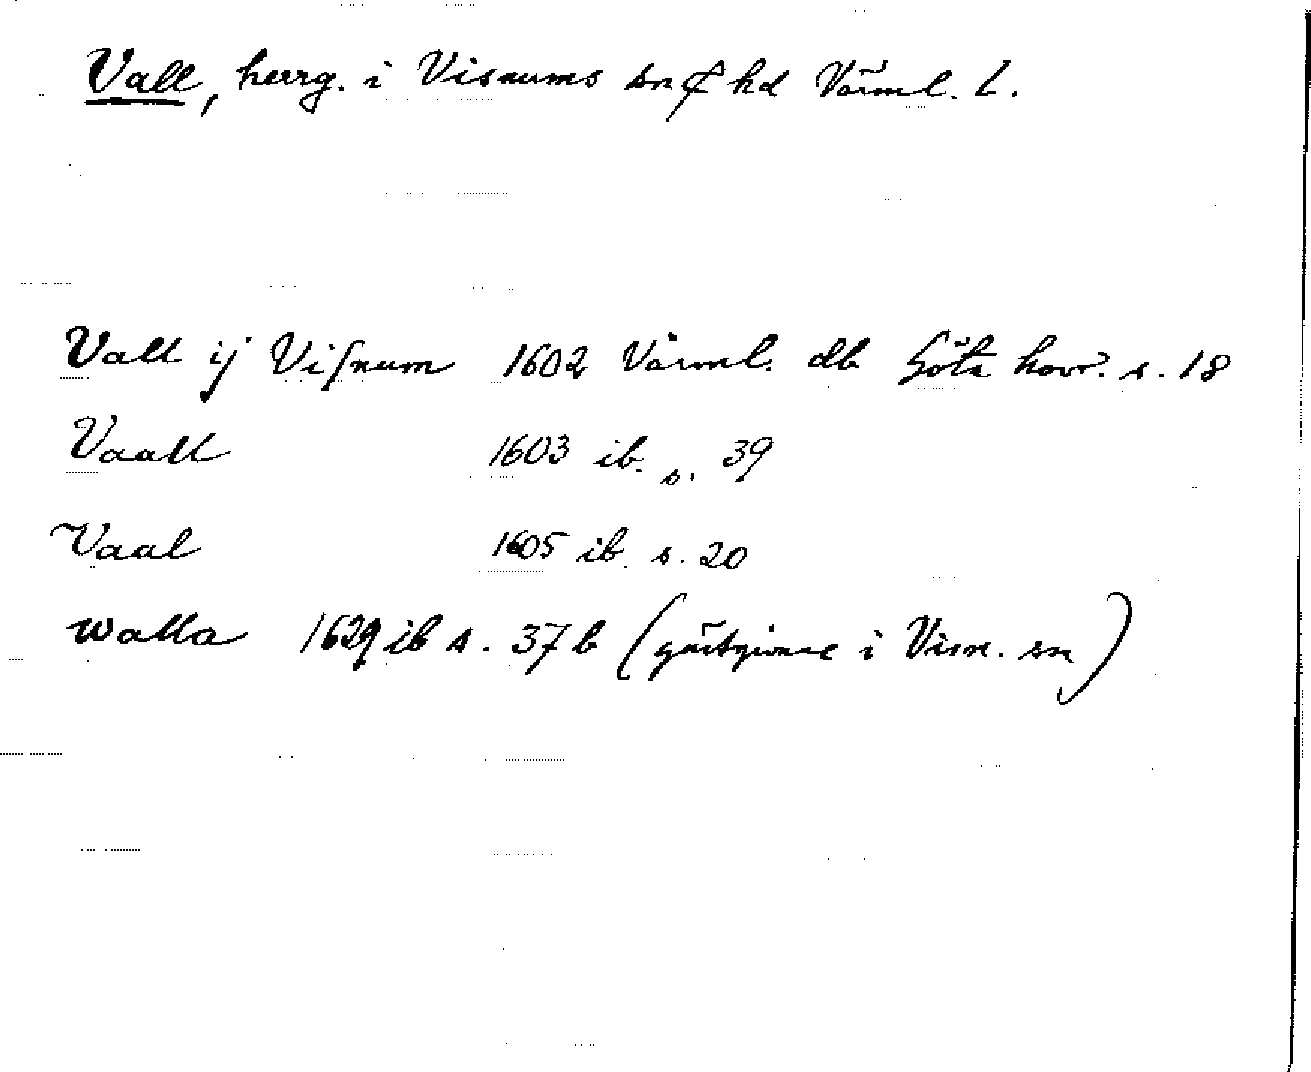 Vall, herrg. i Visnums sn ₵ hd Värml. L.
Vall ij Viſnum 1602 Värml. db Göta hovr. s. 18
Vaall 1603 ib. s. 39
Vaal 1605 ib. s. 20
Walla 1629 ib s. 37 b (gästgivare i Visn. sn)